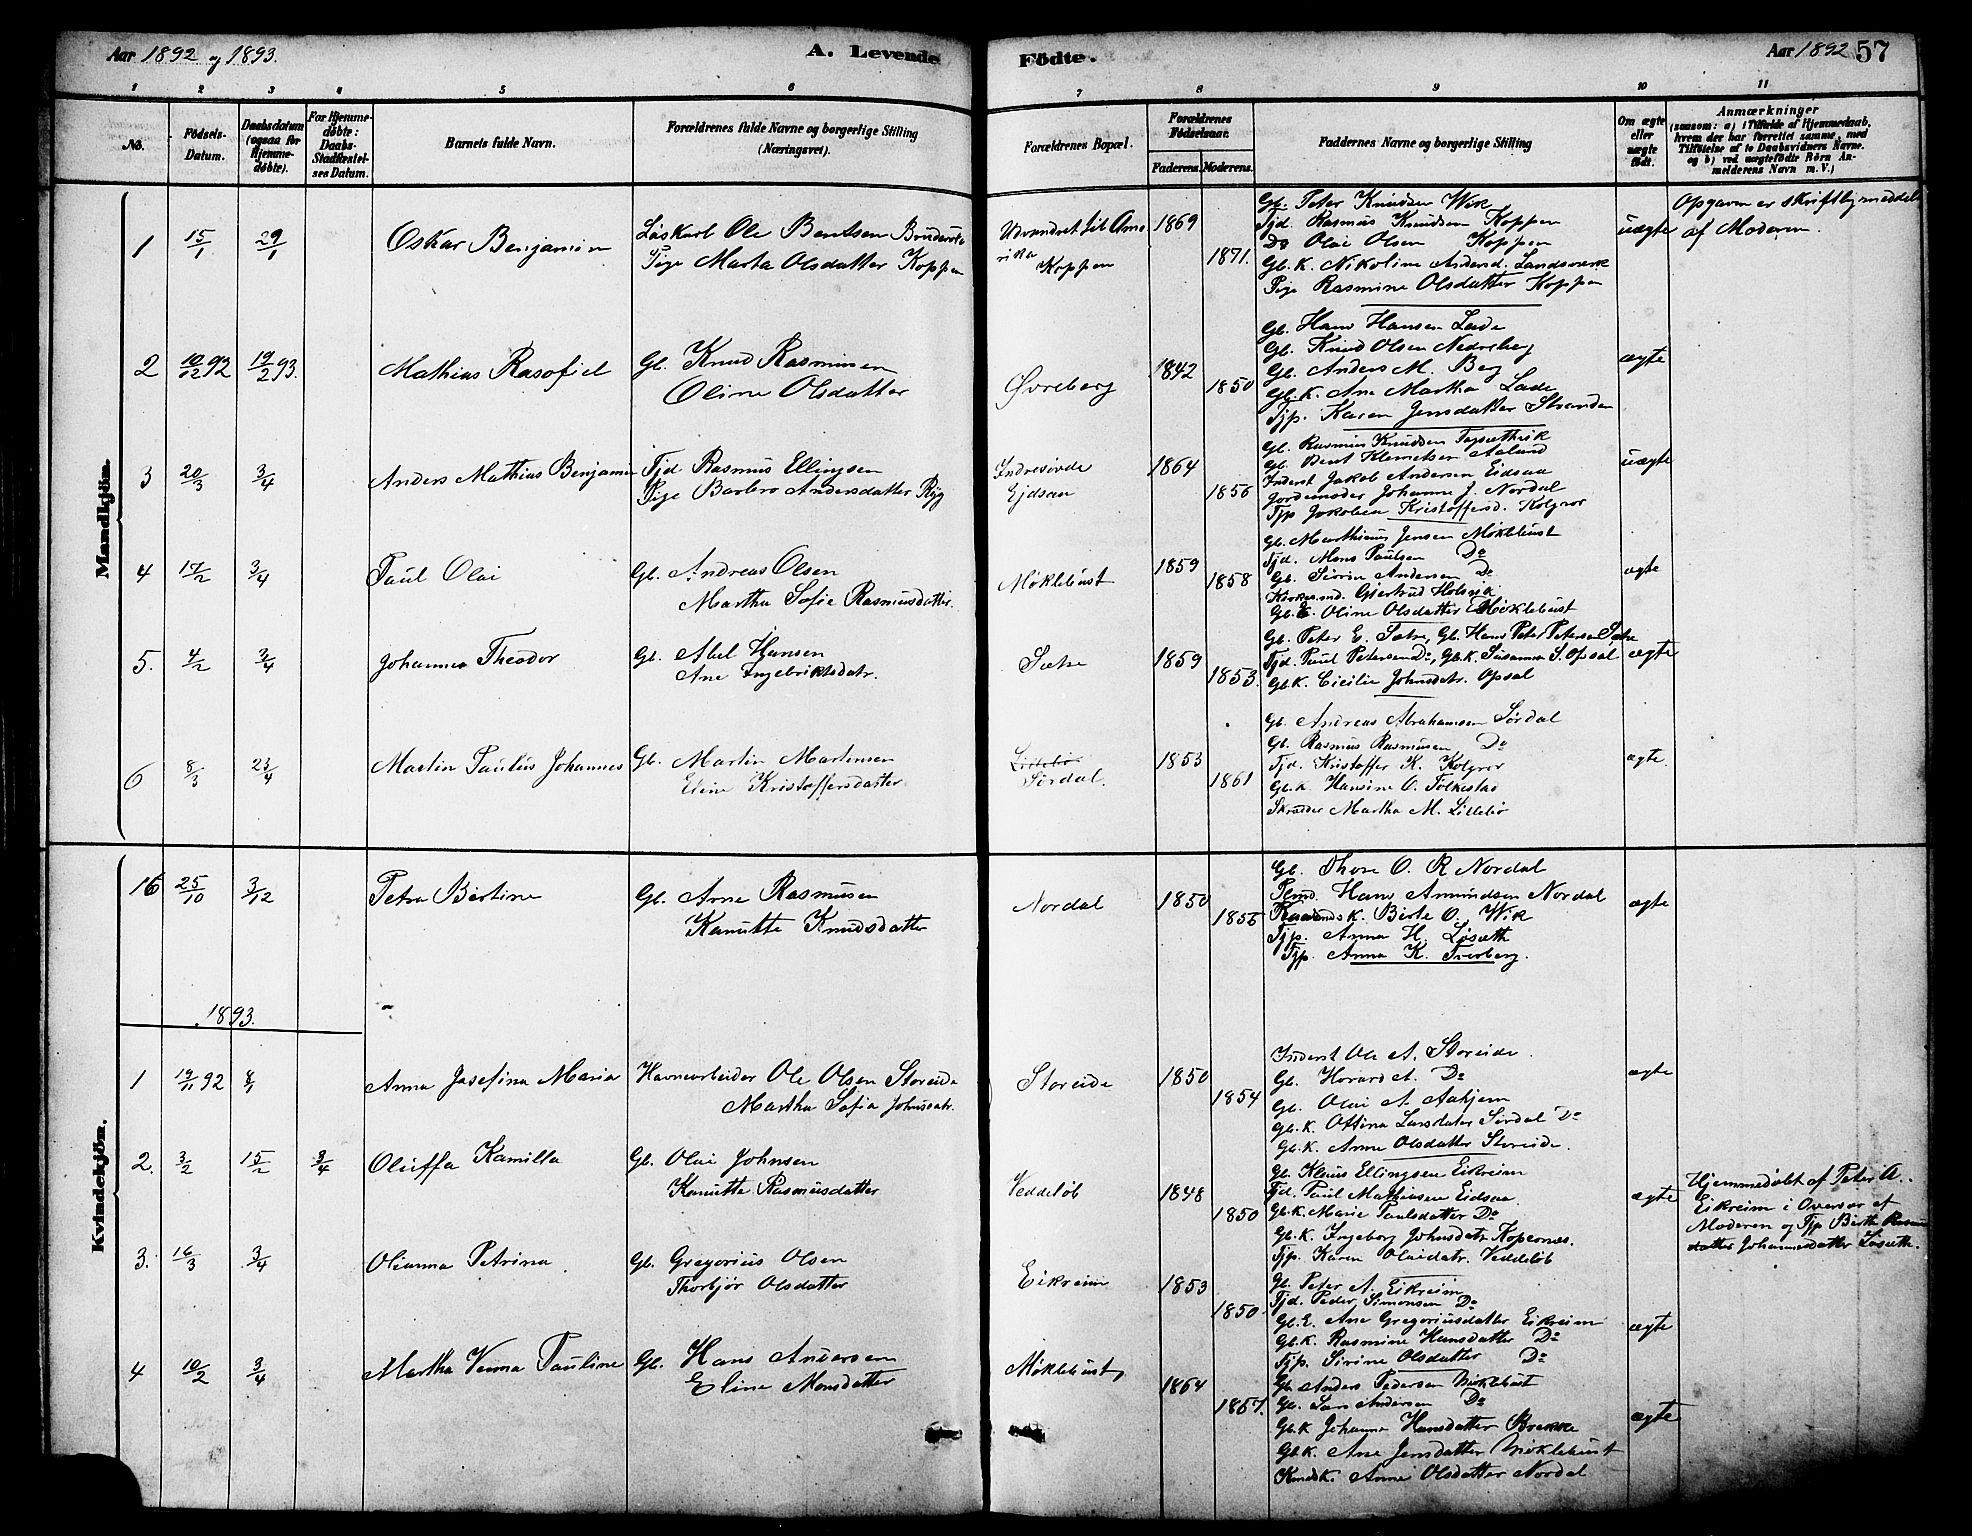 Aar 1892 og 1893.
A. Levende
Födte.
Aar 1892
57
1 2 3 4 5 6 7 8 9 10 11
No.
Födsels-
Datum.
Daabsdatum
(ogsaa for
Hjemme-
döbte).
For Hjemme-
döbte:
Daabs-
Stadfæstel-
ses Datum.
Barnets fulde Navn.
Forældrenes fulde Navne og borgerlige Stilling
(Næringsvei).
Forældrenes Bopæl.
Forældrenes
Födselsaar.
Faderens. Moderens.
Faddernes Navne og borgerlige Stilling
Om ægte
eller
uægte
født.
Anmærkninger
(saasom: a) i Tilfælde af Hjemmedaab,
hvem der har forrettet samme, med
Tilföielse af to Daabsvidners Navne.
og b) ved uægtefödte Börn An-
melderens Navn m. V.)
Mandkjön.
1 15/1 29/1 Oskar Benjamin
Løskarl Ole Bentsen
Pige Marta Olsdatter Koppen
Udvandret til Ame
rika
Koppen
1869
1871.
Gb. Peter Knudsen Wik
Tjd. Rasmus Knudsen Koppen
Do Olai Olsen Koppen
Gb. K. Nikoline Andersd. Landsværk
Pige Rasmine Olsdatter Koppen
uægte
Opgaven er skriftlig meddelt
af Moderen.
2 10/12 92 19/2 93. Mathias Rasofiel
Gb. Knud Rasmusen
Oline Olsdatter
Øvreberg
1842
1850
Gb. Hans Hansen Lade
Gb. Knud Olsen Nedreberg
Gb. Anders M. Berg
Gb. K. Ane Martha Lade
Tjp. Karen Jensdatter Stranden
ægte
3 20/3 3/4 Anders Mathias Benjamin
Tjd Rasmus Ellingsen
Pige Barbro Andersdatter Ryg
Indresövde
Ejdsaa
1864
1856
Gb. Rasmus Knudsen
Gb. Bent Klemetsen Aalund
Inderst Jakob Andersen Eidsaa
Jordemoder Johanne J. Nordal
Tjp Jakobea Kristoffersd. Kolgrov
uægte
4 17/2 3/4 Paul Olai
Gb. Andreas Olsen
Martha Sofie Rasmusdatter.
Møklebust
1859
1858
Gb. Marthinus Jensen Møklebust
Tjd. Mons Paulsen Do
Gb. Sivrin Andersen Do
Gjertrud Holsvik
Oline Olsdatter Møklebust
ægte
5. 4/2 3/4 Johannes Theodor
Gb. Abel Hansen
Ane Ingebriktsdatr.
Sætre
1859
1853.
Gb. Peter E. Sætre, Gb. Hans Peter Petersen Sætre
Tjd. Paul Petersen Do, Gb. K. Susanna S. Opsal
Gb. K. Cicilie Johnsdatr. Opsal
ægte
6 8/3 23/4 Martin Paulus Johannes
Gb. Martin Martinsen
Eline Kristoffersdatter
Lillebø
Sørdal.
1853
1861
Gb. Andreas Abrahamsen Sørdal
Gb. Rasmus Rasmusen Do
Tjd. Kristoffer K. Kolgrov
Gb. K. Hansine O. Folkestad
Skrædder Martha M. Lillebø
ægte.
Kvindekjön.
16 25/10 3/12 Petra Bertine
Gb. Arne Rasmusen
Kanutte Knudsdatter
Nordal
1850
1855
Gb. Thore O. R Nordal
Hans Amundsen Nordal
Birte O. Wik
Tjp. Anna H. Løsæth
Tjp. Anna K. Tverberg.
ægte
1893.
1 19/11 92 8/1 Anna Josefina Maria
Havnearbeider Ole Olsen Storeide
Martha Sofia Johnsdatr.
Storeide
1850
1854
Inderst Ole A. Storeide.
Gb. Hovard A. Do
Gb. Olai A. Aahjem
Gb. K. Ottina Larsdatter Sördal Do
Gb. K. Anne Olsdatter Storeide.
ægte
2. 3/2 15/2 3/4 Oluffa Kamilla
Gb. Olai Johnsen
Kanutte Rasmusdatter
Veddeløb
1848
1850
Gb. Klaus Ellingsen Eikreim
Tjd. Paul Mathiasen Eidsaa
Gb. K. Marie Paulsdatter Do
Gb. K. Ingeborg Johnsdatr. Kopernæs.
Tjp. Karen Olaidatr. Veddeløb
ægte
Hjemmedøbt af Peter A.
Eikreim i Overvær af
Moderen og Tjp Birthe Rasmus
datter Johannesdatter Løsæth.
3. 16/3 3/4 Olianna Petrina
Gb. Gregorius Olsen
Thorbjør Olsdatter
Eikreim
1853
1850.
Gb. Peter A. Eikreim
Tjd. Peder Simonsen Do
Gb. E. Ane Gregoriusdatter Eikreim
Gb. K. Rasmine Hansdatter Do
Tjp. Sirine Olsdatter Do
ægte
4 10/2 3/4 Martha Verma Pauline
Gb. Hans Andersen
Eline Monsdatter
Møklebust
1864
1867.
Gb. Anders Pedersen Møklebust
Gb. Lars Andersen Do
Gb. K Johanna Hansdatter Brekke
Gb. K. Ane Jensdatter Møklebust
Anne Olsdatter Nordal
ægte